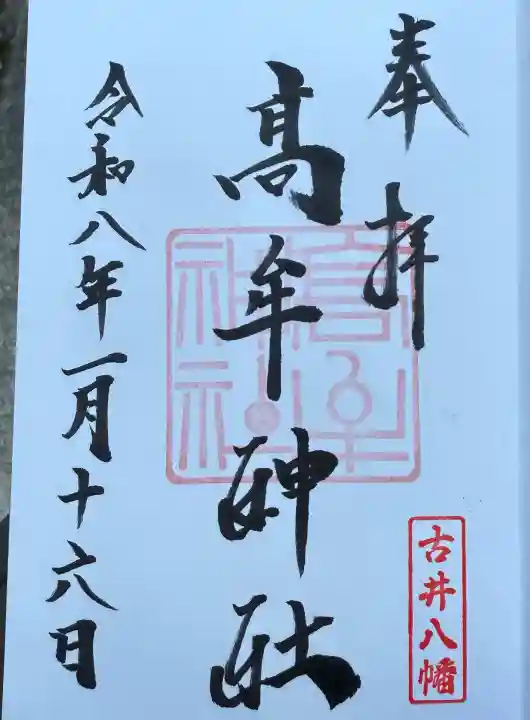 奉拝
髙牟神社
高牟神社
古井八幡
令和八年一月十六日